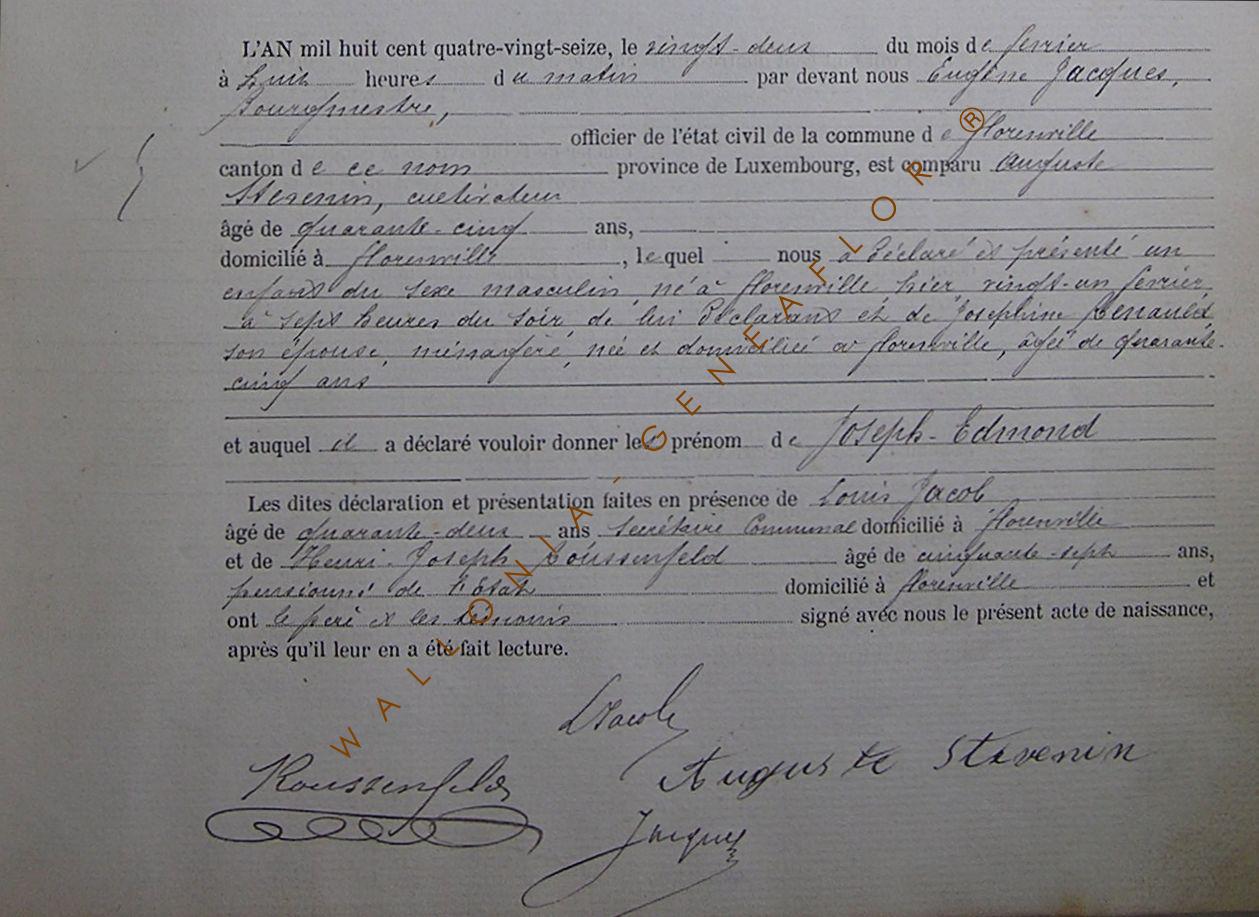 L'AN mil huit cent quatre-vingt-seize, le vingt-deux du mois de février
à huit heures du matin par devant nous Eugène Jacques,
bourgmestre,
officier de l'état civil de la commune de florenville
canton de ce nom province de Luxembourg, est comparu Auguste
Stevenin, cultivateur
âgé de quarante-cinq ans,
domicilié à florenville, lequel nous a déclaré et présenté un
enfant du sexe masculin, né à florenville hier, vingt-un février
à sept heures du soir, de lui déclarant et de Josephine Renauld
son épouse, ménagère, née et domiciliée à florenville, âgée de quarante-
cinq ans
et auquel il a déclaré vouloir donner les prénom de Joseph-Edmond
Les dites déclaration et présentation faites en présence de Louis Jacob
âgé de quarante-deux ans Secrétaire Communal domicilié à florenville
et de Henri-Joseph Roussenfeld âgé de cinquante-sept ans,
pensionné de l'état domicilié à florenville et
ont le père et les témoins signé avec nous le présent acte de naissance,
après qu'il leur en a été fait lecture.
LJacob
Roussenfeld
Auguste Stevenin
Jacques
WALLONIA-GENEAFLOR®